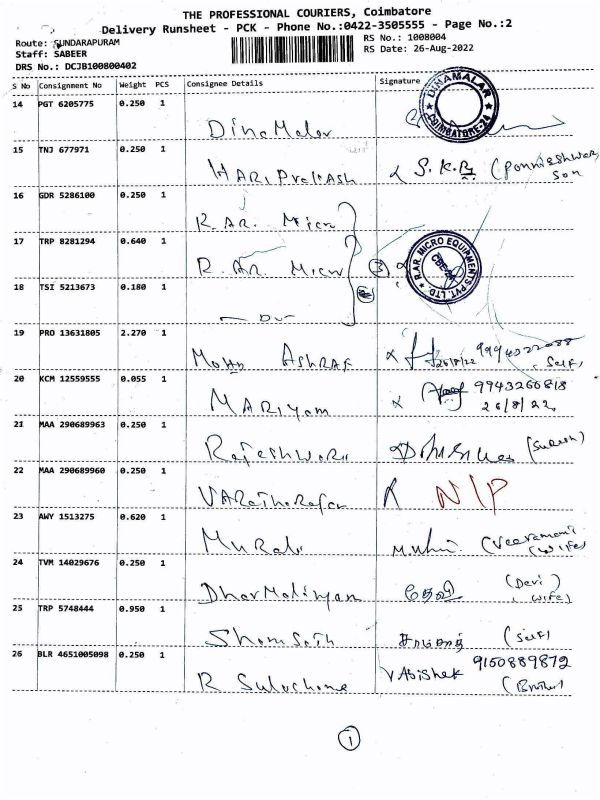 THE PROFESSIONAL COURIERS, Coimbatore
Delivery Runsheet - PCK - Phone No.:0422-3505555 - Page No.:2
Route: SUNDARAPURAM
Staff: SABEER
DRS No.: DCJB100800402
RS No.: 1008004
RS Date: 26-Aug-2022
S No Consignment No Weight PCS Consignee Details Signature
14 PGT 6205775 0.250 1
DinaMalar
DINAMALAR COIMBATORE-24
15 TNJ 677971 0.250 1
HARi PraKASh S.K.R
Son
16 GDR 5286100 0.250 1
R. AR. Micro
17 TRP 8281294 0.640 1
R. AR Micro 3
R.AR. MICRO EQUIPMENTS PVT. LTD. CBE-24
18 TSI 5213673 0.180 1
- Do -
19 PRO 13631805 2.270 1
Mohd AShRAF 26/8/22 (Self)
20 KCM 12559555 0.055 1
MARiyam 9943260818
26/8/22
21 MAA 290689963 0.250 1
RajeshwaRi
22 MAA 290689960 0.250 1
VARatharajan N/P
23 AWY 1513275 0.620 1
MuRali (Veeramani
(wife)
24 TVM 14029676 0.250 1
DharMalingam தேவி (Devi)
(wife)
25 TRP 5748444 0.950 1
ShamSath (Self)
26 BLR 4651005098 0.250 1
R Sulochana V Abishek 9150889872
(Brother)
1